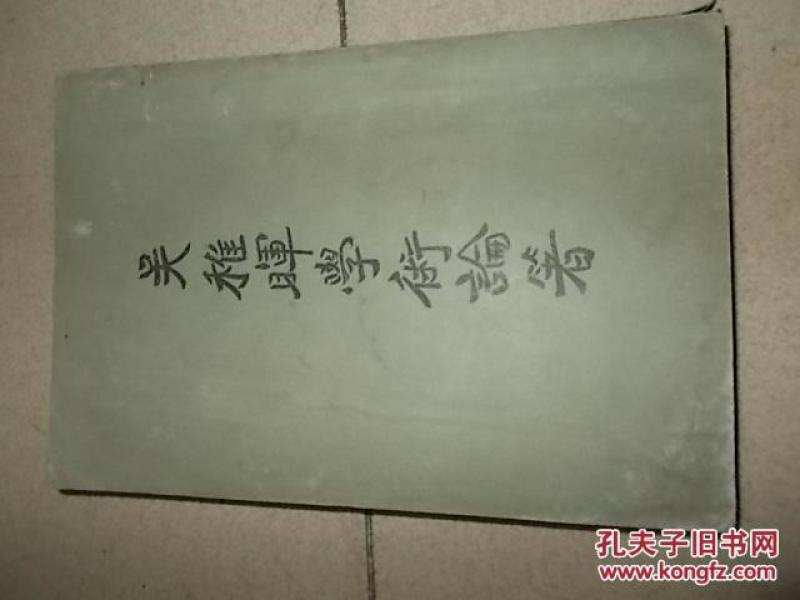 吳稚暉學術論著
孔夫子旧书网
www.kongfz.com